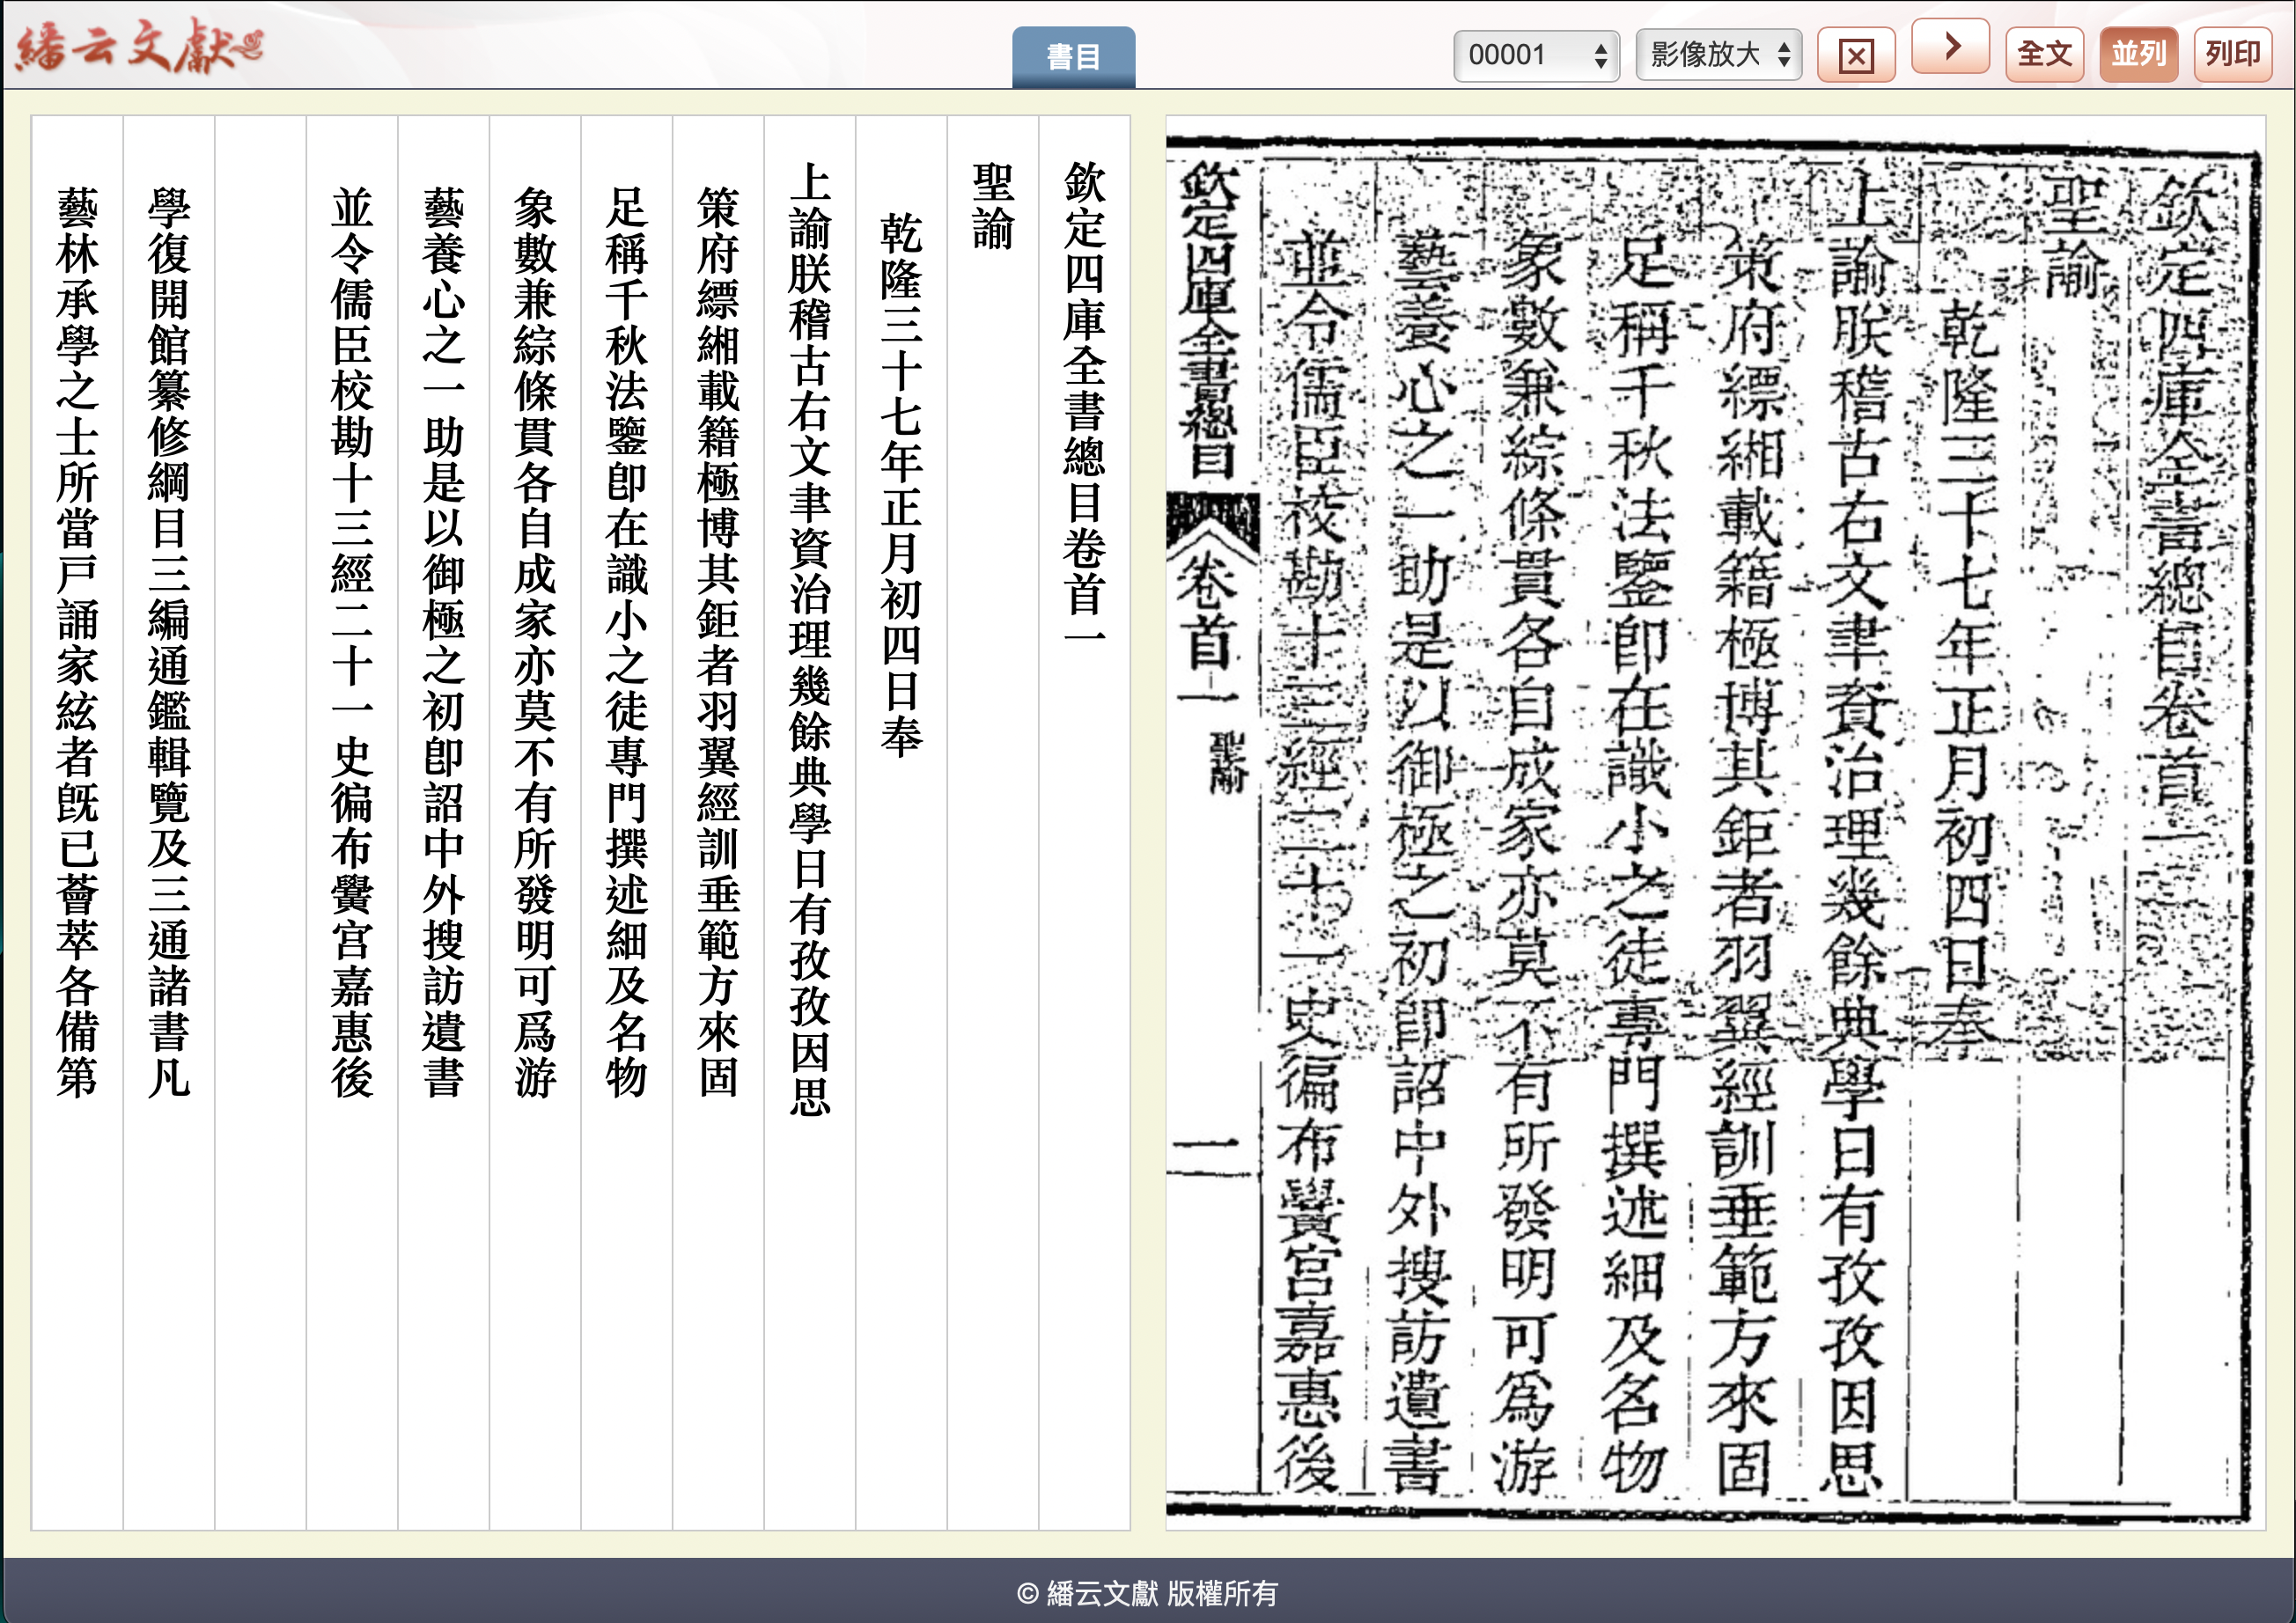 繙云文獻
書目
00001
影像放大
全文
並列
列印
欽定四庫全書總目卷首一
聖諭
乾隆三十七年正月初四日奉
上諭朕稽古右文聿資治理幾餘典學日有孜孜因思
策府縹緗載籍極博其鉅者羽翼經訓垂範方來固
足稱千秋法鑒卽在識小之徒專門撰述細及名物
象數兼綜條貫各自成家亦莫不有所發明可爲游
藝養心之一助是以御極之初卽詔中外搜訪遺書
並令儒臣校勘十三經二十一史徧布黌宫嘉惠後
學復開館纂修綱目三編通鑑輯覽及三通諸書凡
藝林承學之士所當戸誦家絃者旣已薈萃各備第
欽定四庫全書總目卷首一
聖諭
乾隆三十七年正月初四日奉
上諭朕稽古右文聿資治理幾餘典學日有孜孜因思
策府縹緗載籍極博其鉅者羽翼經訓垂範方來固
足稱千秋法鑒卽在識小之徒專門撰述細及名物
象數兼綜條貫各自成家亦莫不有所發明可爲游
藝養心之一助是以御極之初卽詔中外搜訪遺書
並令儒臣校勘十三經二十一史徧布黌宫嘉惠後
欽定四庫全書總目 卷首一 聖諭 一
© 繙云文獻 版權所有